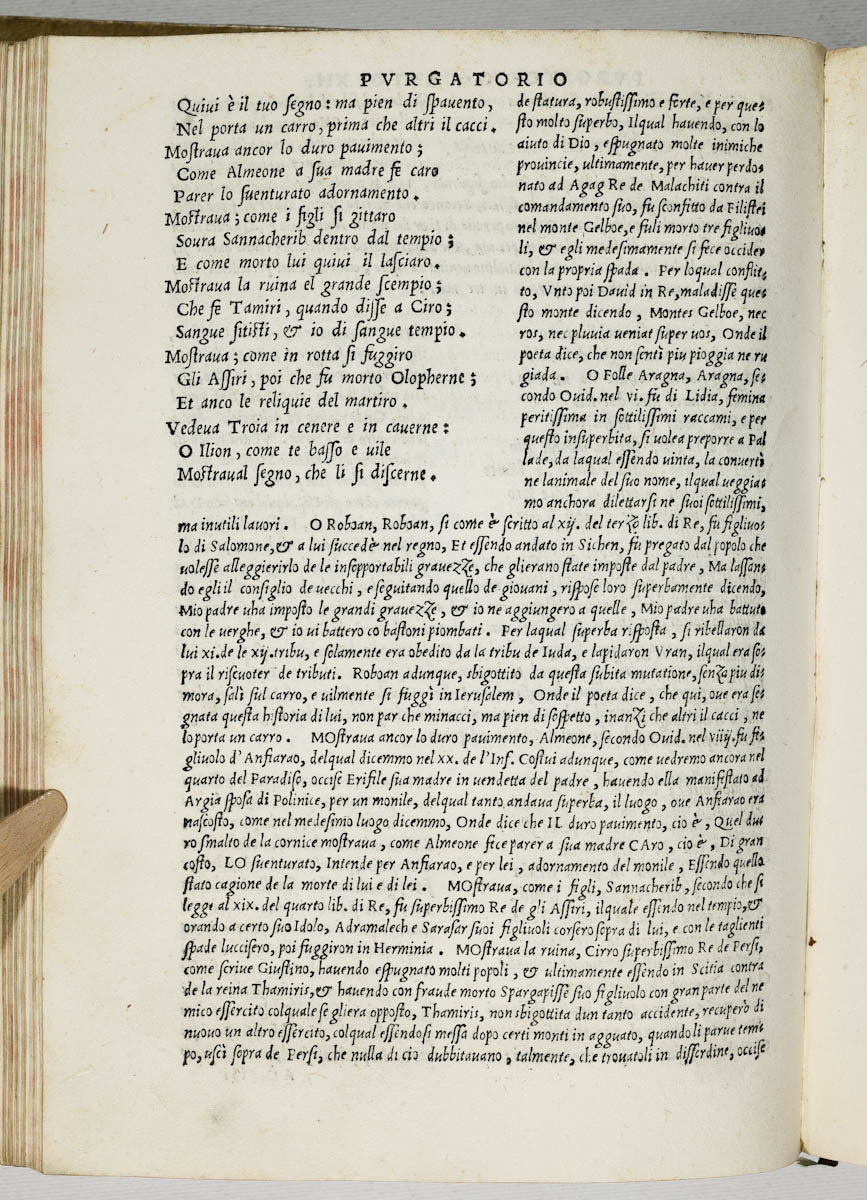 PVRGATORIO
Quiui è il tuo segno: ma pien di spauento,
Nel porta un carro, prima che altri il cacci.
Mostraua ancor lo duro pauimento;
Come Almeone a sua madre fe caro
Parer lo suenturato adornamento.
Mostraua; come i figli si gittaro
Soura Sannacherib dentro dal tempio;
E come morto lui quiui il lasciaro.
Mostraua la ruina el grande scempio;
Che fe Tamiri, quando disse a Ciro;
Sangue sitisti, & io di sangue t'empio.
Mostraua; come in rotta si fuggiro
Gli Assiri, poi che fu morto Olopherne;
Et anco le reliquie del martiro.
Vedeua Troia in cenere e in cauerne:
O Ilion, come te basso e uile
Mostraual segno, che li si discerne.
de statura, robustissimo e forte, e per que-
sto molto superbo, Ilqual hauendo, con lo
aiuto di Dio, espugnato molte inimiche
prouincie, ultimamente, per hauer perdo-
nato ad Agag Re de Malachiti contra il
comandamento suo, fu sconfitto da Filistei
nel monte Gelboe, e fuli morto tre figliuo-
li, & egli medesimamente si fece occider
con la propria spada. Per loqual conflit-
to, Vnto poi Dauid in Re, maladisse que-
sto monte dicendo, Montes Gelboe, nec
ros, nec pluuia ueniat super uos, Onde il
poeta dice, che non sentì piu pioggia ne ru
giada. O Folle Aragna, Aragna, se-
condo Ouid. nel vi. fu di Lidia, femina
peritissima in sottilissimi raccami, e per
questo insuperbita, si uolea preporre a Pal
lade, da laqual essendo uinta, la conuertì
ne lanimale del suo nome, ilqual ueggia-
mo anchora dilettarsi ne suoi sottilissimi,
ma inutili lauori. O Roboan, Roboan, si come è scritto al xij. del terzo lib. di Re, fu figliuo-
lo di Salomone, & a lui succedè nel regno, Et essendo andato in Sichen, fu pregato dal popolo che
uolesse alleggierirlo de le insopportabili grauezze, che glierano state imposte dal padre, Ma lassan-
do egli il consiglio de uecchi, e seguitando quello de giouani, rispose loro superbamente dicendo,
Mio padre uha imposto le grandi grauezze, & io ne aggiungero a quelle, Mio padre uha battuto
con le uerghe, & io ui battero co bastoni piombati. Per laqual superba risposta, si ribellaron da
lui xi. de le xij. tribu, e solamente era obedito da la tribu de Iuda, e lapidaron Vran, ilqual era so-
pra il riscuoter de tributi. Roboan adunque, sbigottito da questa subita mutatione, senza piu di-
mora, salì sul carro, e uilmente si fuggì in Ierusalem, Onde il poeta dice, che qui, oue era se-
gnata questa historia di lui, non par che minacci, ma pien di sospetto, inanzi che altri il cacci, ne
lo porta un carro. MOstraua ancor lo duro pauimento, Almeone, secondo Ouid. nel viiij. fu fi-
gliuolo d'Anfiarao, delqual dicemmo nel xx. de l'Inf. Costui adunque, come uedremo ancora nel
quarto del Paradiso, occise Erifile sua madre in uendetta del padre, hauendo ella manifestato ad
Argia sposa di Polinice, per un monile, delqual tanto andaua superba, il luogo, oue Anfiarao era
nascosto, come nel medesimo luogo dicemmo, Onde dice che IL duro pauimento, cio è, Quel du-
ro smalto de la cornice mostraua, come Almeone fice parer a sua madre CAro, cio è, Di gran
costo, LO suenturato, Intende per Anfiarao, e per lei, adornamento del monile, Essendo quello
stato cagione de la morte di lui e di lei. MOstraua, come i figli, Sannacherib, secondo che si
legge al xix. del quarto lib. di Re, fu superbissimo Re de gli Assiri, ilquale essendo nel tempio, &
orando a certo suo Idolo, Adramalech e Sarasar suoi figliuoli corsero sopra di lui, e con le taglienti
spade luccisero, poi fuggiron in Herminia. MOstraua la ruina, Cirro superbissimo Re de Persi,
come scriue Giustino, hauendo espugnato molti popoli, & ultimamente essendo in Scitia contra
de la reina Thamiris, & hauendo con fraude morto Spargapisse suo figliuolo con gran parte del ne
mico essercito colquale se gliera opposto, Thamiris, non sbigottita dun tanto accidente, recuperò di
nuouo un altro essercito, colqual essendosi messa dopo certi monti in agguato, quando li parue tem-
po, uscì sopra de Persi, che nulla di cio dubbitauano, talmente, che trouatoli in disserdine, occise